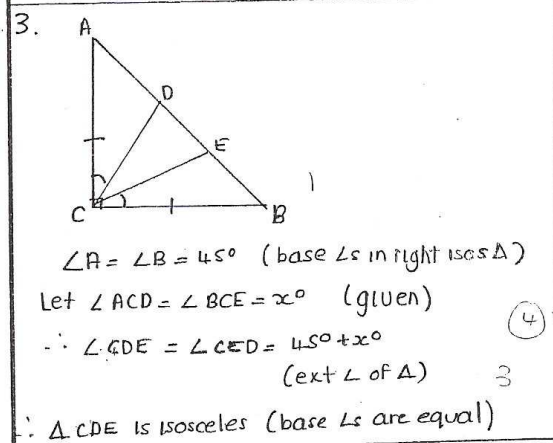 3.
A
D
E
C
B
1
∠A = ∠B = 45° (base ∠s in right isos Δ)
Let ∠ACD = ∠BCE = x° (given)
∴ ∠CDE = ∠CED = 45° + x°
4
(ext ∠ of Δ)
3
∴ Δ CDE is isosceles (base ∠s are equal)